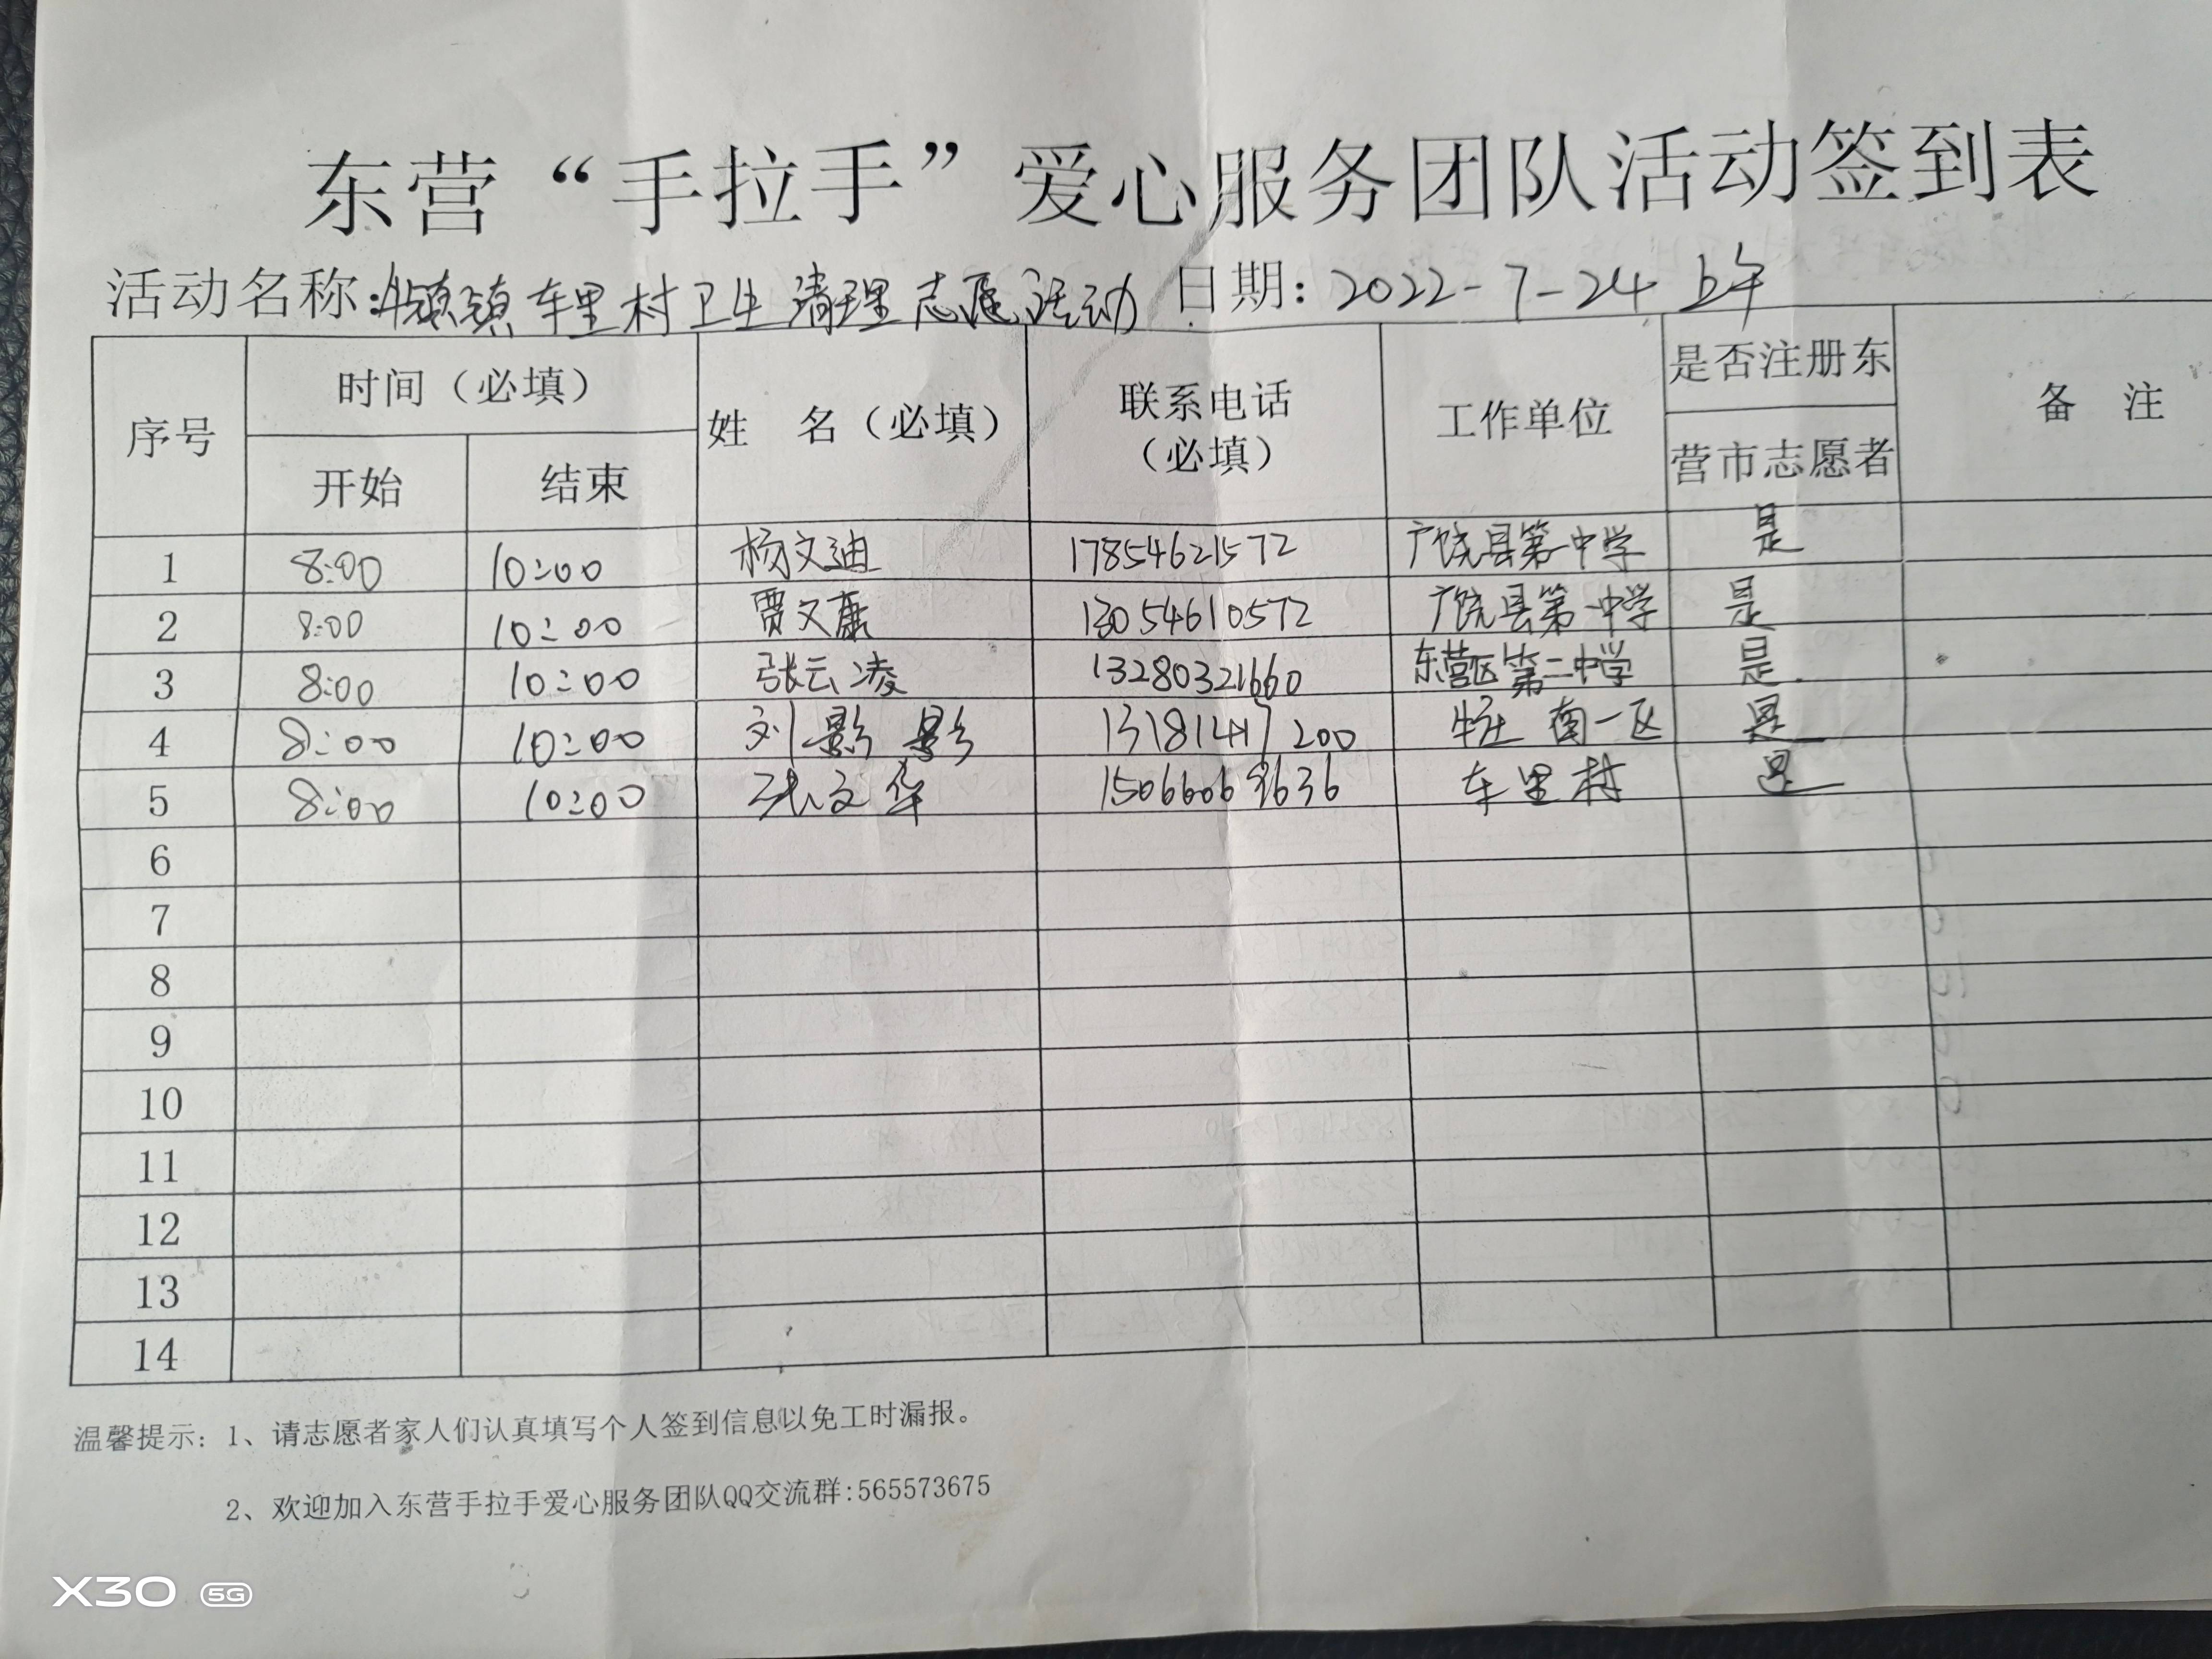 东营“手拉手”爱心服务团队活动签到表
活动名称: 镇车里村卫生清理志愿活动 日期: 2022-7-24 上午
序号 时间（必填） 姓 名（必填） 联系电话（必填） 工作单位 是否注册东营市志愿者 备 注
开始 结束
1 8:00 10:00 杨文迪 17854621572 广饶县第一中学 是
2 8:00 10:00 贾文康 13054610572 广饶县第一中学 是
3 8:00 10:00 张云凌 13280321660 东营区第二中学 是
4 8:00 10:00 刘影影 牛庄南一区 是
5 8:00 10:00 张文华 15066069636 车里村 是
6
7
8
9
10
11
12
13
14
温馨提示: 1、请志愿者家人们认真填写个人签到信息以免工时漏报。
2、欢迎加入东营手拉手爱心服务团队QQ交流群:565573675
X30 5G